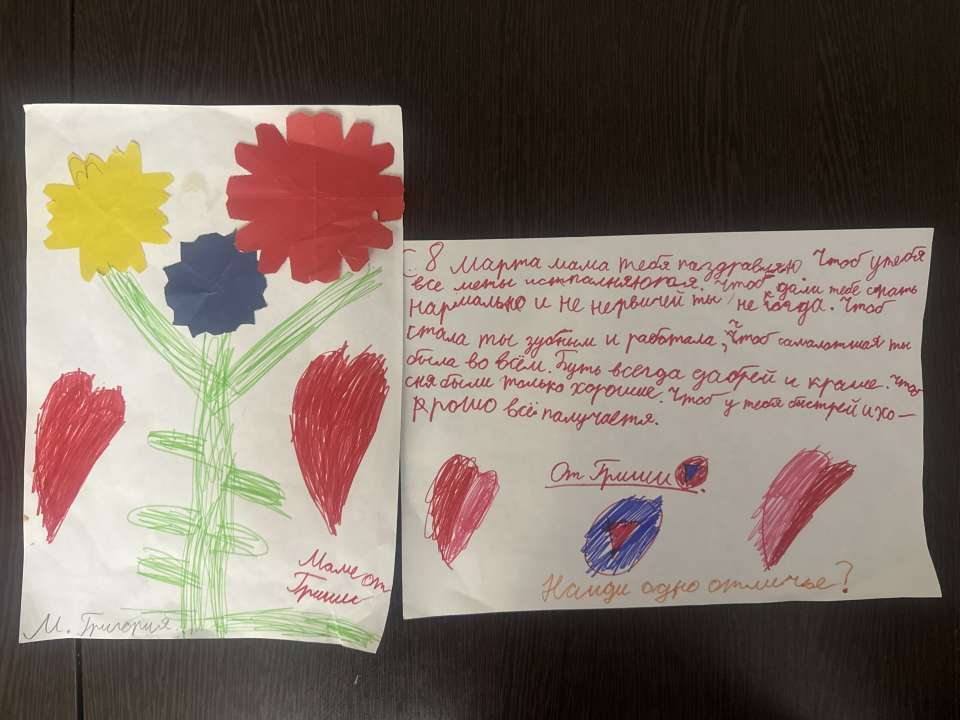 Маме от
Гриши
М. Григория
С 8 Марта мама тебя паздравляю Чтоб утебя
все меты исталняются. Чтоб дали тебе спать
нармально и не нервичей ты не когда. Чтоб
стала ты зубным и работала, Чтоб
была во всём. Буть всегда дабрей и краше. Что
сня были только хорошие. Чтоб у тебя быстрей и хо-
рошо всё палучается.
От Гриши.
Найди одно отличье?